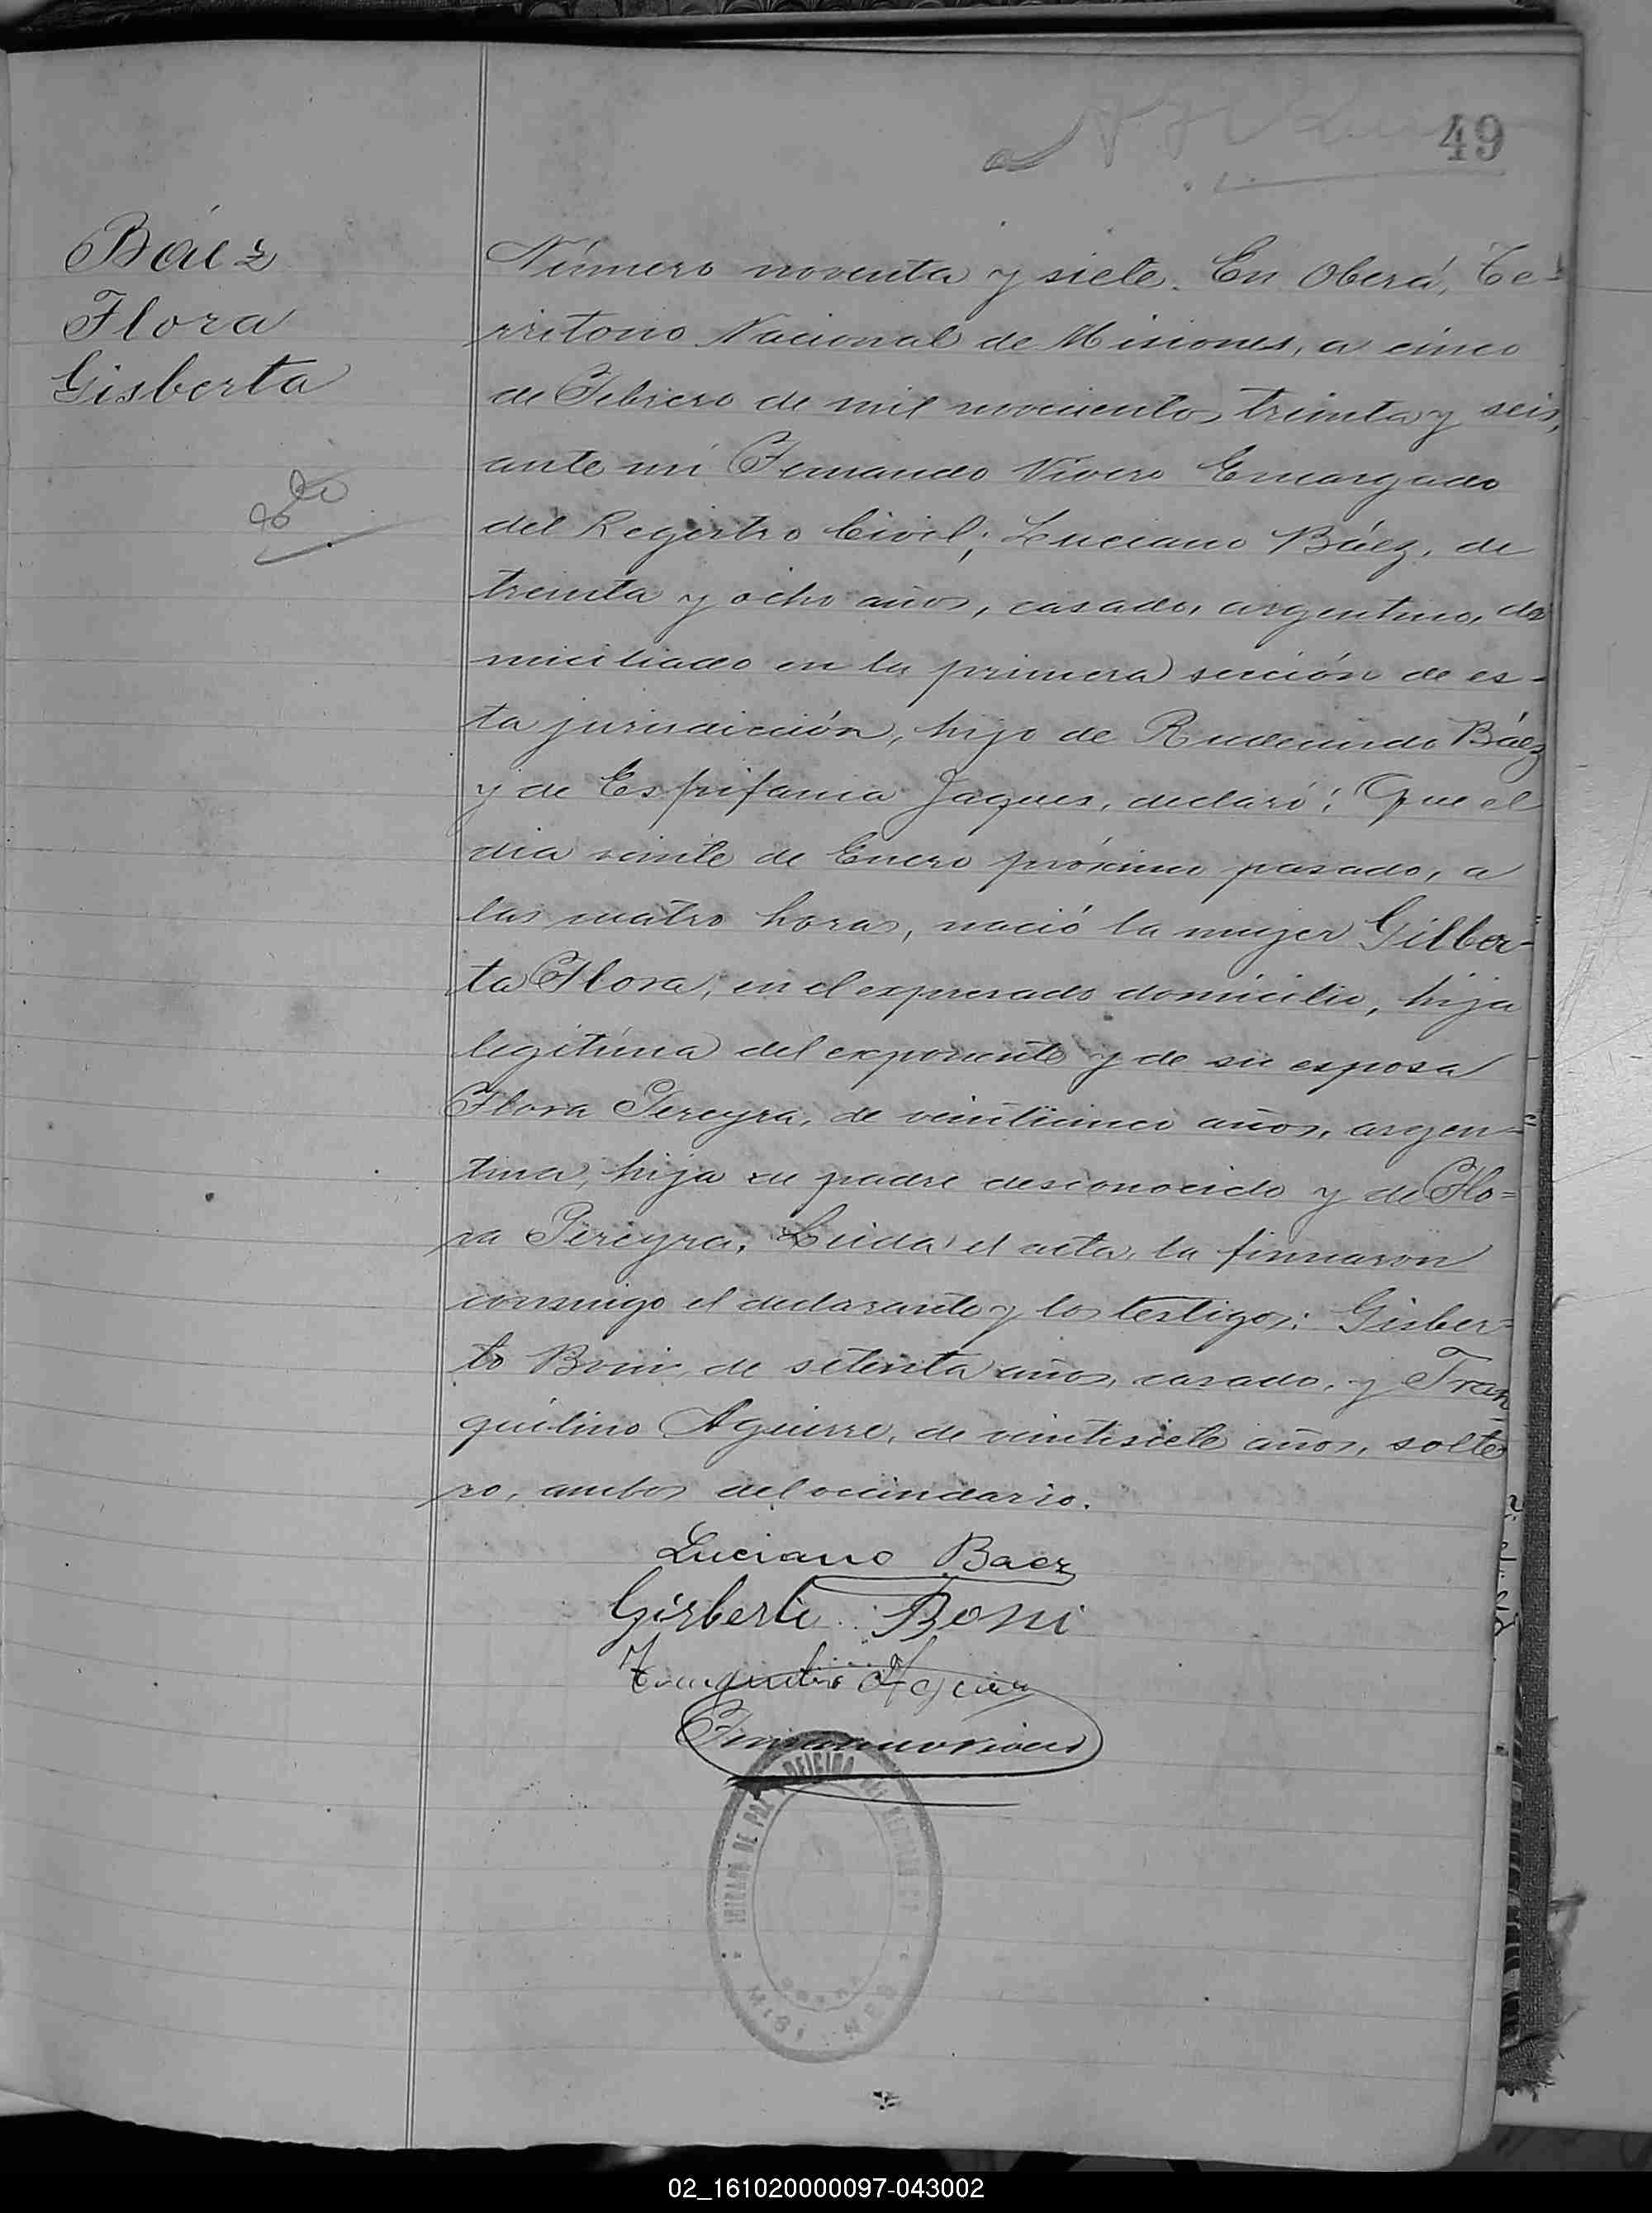 49
Báez
Flora
Gisberta
Número noventa y siete. En Oberá, Te-
rritorio Nacional de Misiones, a cinco
de Febrero de mil novecientos treinta y seis,
ante mí Fernando Vivero Encargado
del Registro Civil; Luciano Báez, de
treinta y ocho años, casado, argentino, do
miciliado en la primera sección de es-
ta jurisdicción, hijo de Rudecindo Báez
y de Espifania Jaques, declaró: Que el
día veinte de Enero próximo pasado, a
las cuatro horas, nació la mujer Gilber-
ta Flora, en el expresado domicilio, hija
legítima del exponente y de su esposa
Flora Pereyra, de veinticinco años, argen-
tina, hija de padre desconocido y de Flo=
ra Pereyra. Leida el acta, la firmaron
conmigo el declarante y los testigos: Gisber=
to Boni, de setenta años, casado, y Tran
quilino Aguirre, de veintisiete años, solte
ro, ambos del vecindario.
Luciano Baez
Gisberto Boni
JUZGADO DE PAZ OFICINA DEL REGISTRO
02_161020000097-043002